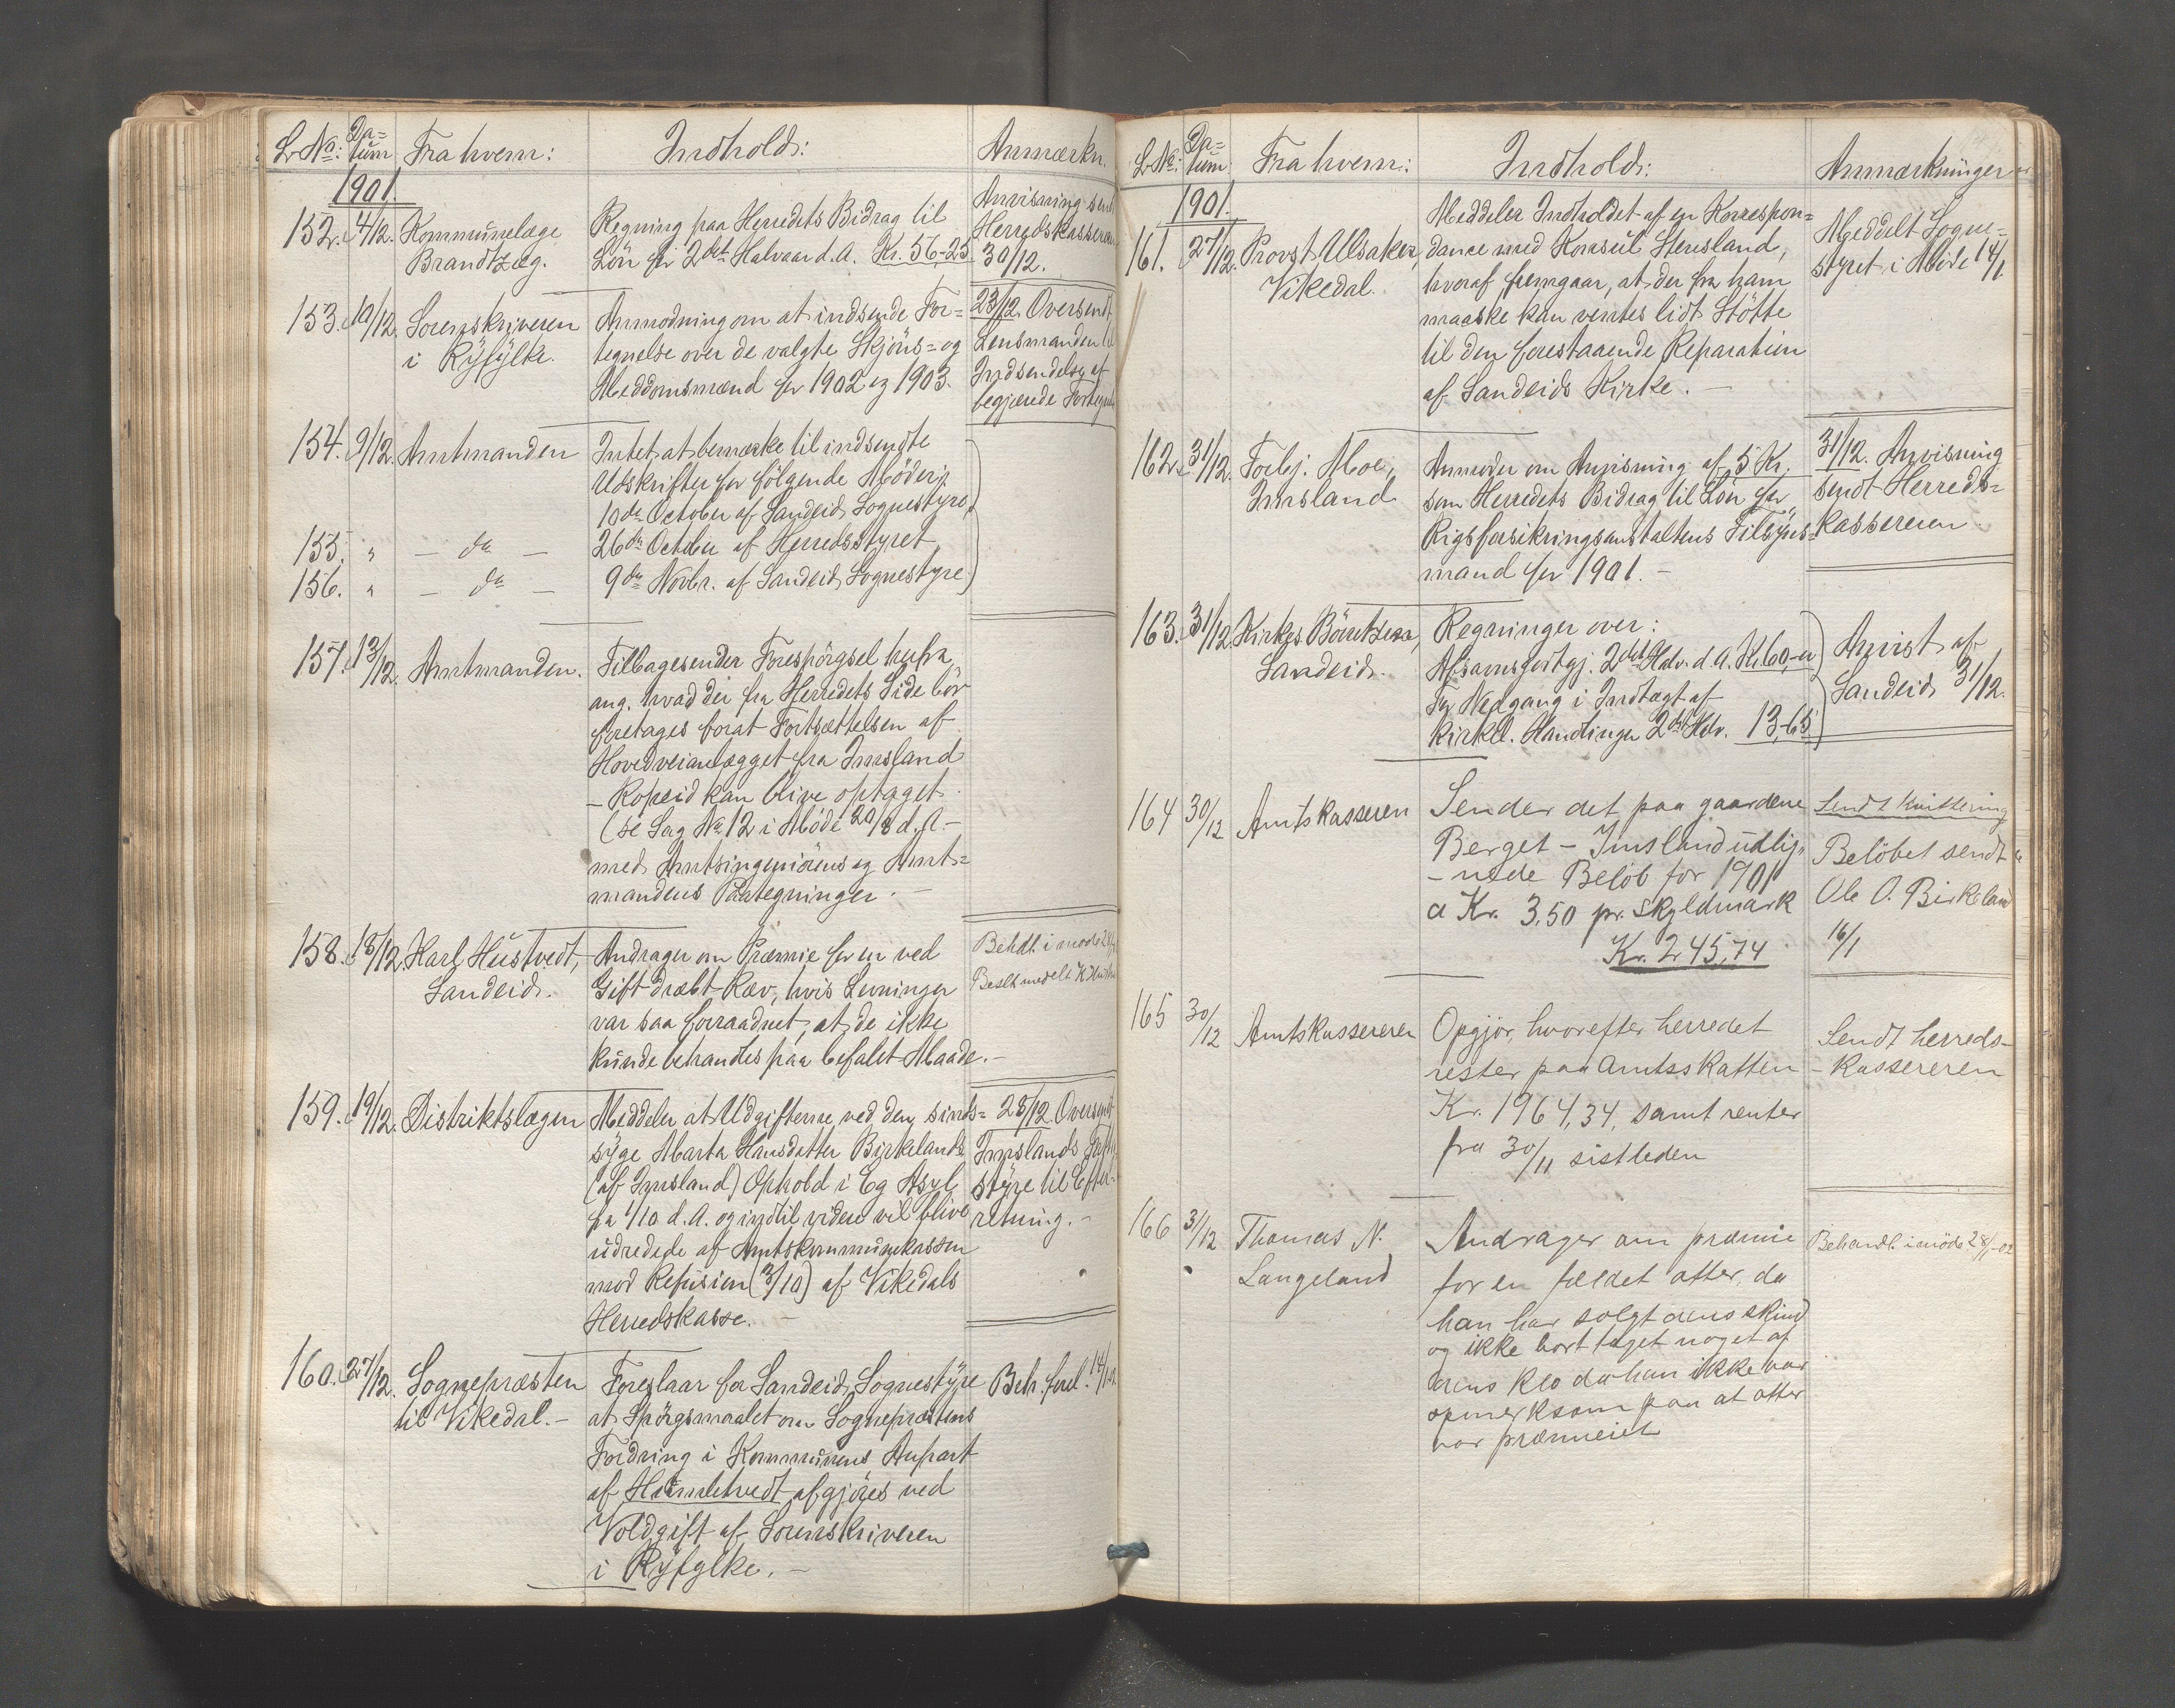 L. No: Da=tum Fra hvem: Indhold: Anmærkn.
1901.
152. 4/12. Kommunelæge Regning paa Herredets Bidrag til Anvisning sendt
Brandtzæg. Løn for 2det Halvaar d. A. Kr. 56,25 Herredskasseren
30/12.
153. 10/12. Sorenskriveren Anmodning om at indsende For= 23/12. Oversendt
i Ryfylke. tegnelse over de valgte Skjöns= og Lensmanden til
Meddomsmænd for 1902 og 1903. Indsendelse af
begjærede
154. 9/12. Amtmanden Intet at bemærke til indsendte
Udskrifter for fölgende Möder:
10de October af Sandeid Sognestyre,
155. " — do — 26de October af Herredsstyret,
156. " — do — 9de Novbr. af Sandeid Sognestyre.
157. 13/12. Amtmanden. Tilbagesender Forespörgsel herfra
ang. hvad der fra Herredets Side bör
foretages forat Fortsættelsen af
Hovedveianlægget fra Imsland
— Ropeid kan blive optaget.
(se Sag No 12 i Möde 20/8 d. A. —
med Amtsingeniörens og Amt=
mandens Paategninger. —
158. 18/12. Karl Hustvedt, Andrager om Præmie for en ved Behdt. i møde 28/1
Sandeid. Gift dræbt Ræv, hvis Levninger
var saa forraadnet, at de ikke
kunde behandles paa befalet Maade. —
159. 19/12. Distriktslægen Meddeler at Udgifterne ved den sinds= 28/12 Oversendt
syge Marta Hansdatter Birkelands Imslands
(af Imsland) Ophold i Eg Asyl styre til Efter=
fra 1/10 d. A. og indtil videre vil blive retning. —
udredede af Amtskommunekassen
mod Refusion (3/10) af Vikedals
Herredskasse. —
160. 27/12. Sognepræsten Foreslaar for Sandeid Sognestyre Beh. forel. 14/1
til Vikedal. — at Spörgsmaalet om Sognepræstens
Fordring i Kommunens Anpart
af afgjöres ved
Voldgift af Sorenskriveren
i Ryfylke. —
L. No: Da=tum Fra hvem: Indhold: Anmærkninger
1901.
161. 27/12. Provst Ullsaker, Meddeler Indholdet af en Korrespon= Meddelt Sogne=
Vikedal. dance med Konsul Stensland, styret i Möde 14/1
hvoraf fremgaar, at der fra ham
maaske kan ventes lidt Stötte
til den forestaaende Reparation
af Sandeids Kirke. —
162. 31/12. Torbj. Moe, Anmoder om Anvisning af 5 Kr. 31/12. Anvisning
Imsland som Herredets Bidrag til Lön for sendt Herreds=
Rigsforsikringsanstaltens Tilsyns= kassereren.
mand for 1901. —
163. 31/12 Regninger over: Anvist af
Sandeid. Afsavnsgodtgj. 2det Halv. d. A. Kr. 60,- Sandeid 31/12.
For Nedgang i Indtægt af
kirkel. Handlinger 2det Halv. 13,65
164 30/12 Amtskasseren Sender det paa gaardene Sendt kvittering
Berget – Imsland udlig= Belöbet sendt
– nede Belöb for 1901 Ole O. Birkeland
a Kr. 3,50 pr. Skyldmark 16/1
Kr. 245,74
165 30/12 Amtskassereren Opgjör, hvorefter herredet Sendt herreds-
rester paa Amtsskatten – kassereren
Kr. 1964,34, samt renter
fra 30/11 sistleden
166 31/12 Thomas N. Andrager om præmie Behandl. i möde 28/1-02
Langeland for en fældet otter, da
han har solgt dens skind
og ikke bort taget noget af
dens klo da han ikke var
opmerksom paa at otter
var præmieret